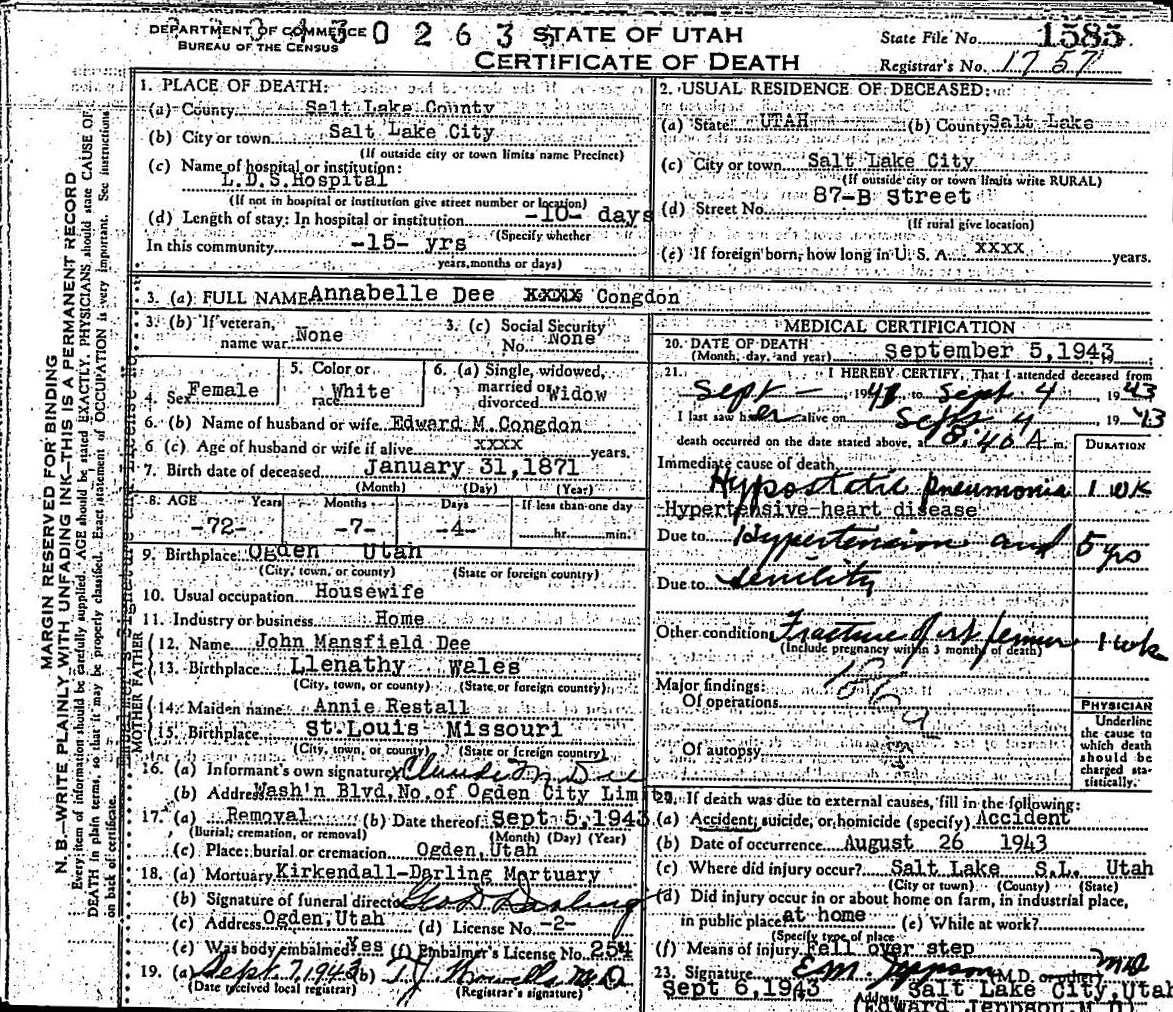 DEPARTMENT OF COMMERCE
BUREAU OF THE CENSUS
0 2 6 3
STATE OF UTAH
CERTIFICATE OF DEATH
State File No. 1585
Registrar's No. 1757
MARGIN RESERVED FOR BINDING
N. B.—WRITE PLAINLY WITH UNFADING INK—THIS IS A PERMANENT RECORD
Every item of information should be carefully supplied. AGE should be stated EXACTLY. PHYSICIANS should state CAUSE OF
DEATH in plain terms, so that it may be properly classified. Exact statement of OCCUPATION is very important. See instructions
on back of certificate.
1. PLACE OF DEATH:
(a) County Salt Lake County
(b) City or town Salt Lake City
(If outside city or town limits name Precinct)
(c) Name of hospital or institution:
L.D.S.Hospital
(If not in hospital or institution give street number or location)
(d) Length of stay: In hospital or institution -10- days
(Specify whether
In this community -15- yrs
years, months or days)
2. USUAL RESIDENCE OF DECEASED:
(a) State UTAH (b) County Salt Lake
(c) City or town Salt Lake City
(If outside city or town limits write RURAL)
(d) Street No. 87-B Street
(If rural give location)
(e) If foreign born, how long in U. S. A. xxxx years.
3. (a) FULL NAME Annabelle Dee xxxx Congdon
3. (b) If veteran, name war None
3. (c) Social Security No. None
4. Sex Female
5. Color or race White
6. (a) Single, widowed, married or divorced Widow
6. (b) Name of husband or wife Edward M.Congdon
6 (c) Age of husband or wife if alive xxxx years.
7. Birth date of deceased January 31,1871
(Month) (Day) (Year)
8. AGE Years Months Days If less than one day
-72- -7- -4- hr. min.
9. Birthplace Ogden Utah
(City, town, or county) (State or foreign country)
10. Usual occupation Housewife
11. Industry or business Home
FATHER
12. Name John Mansfield Dee
13. Birthplace Llenathy Wales
(City, town, or county) (State or foreign country)
MOTHER
14. Maiden name Annie Restall
15. Birthplace St.Louis Missouri
(City, town, or county) (State or foreign country)
16. (a) Informant's own signature x Claude M Dee
(b) Address Wash'n Blvd,No.of Ogden City Lim
17. (a) Removal (b) Date thereof Sept 5,1943
(Burial, cremation, or removal) (Month) (Day) (Year)
(c) Place: burial or cremation Ogden,Utah
18. (a) Mortuary Kirkendall-Darling Mortuary
(b) Signature of funeral director Geo D Darling
(c) Address Ogden,Utah (d) License No. -2-
(e) Was body embalmed? Yes (f) Embalmer's License No. 254
19. (a) Sept. 7, 1943 (b) T.J. Howells M.D
(Date received local registrar) (Registrar's signature)
MEDICAL CERTIFICATION
20. DATE OF DEATH
(Month, day, and year) September 5,1943
21. I HEREBY CERTIFY, That I attended deceased from
Sept — 1941, to Sept 4, 1943
I last saw her alive on Sept 4, 1943
death occurred on the date stated above, at 8:40 A m.
DURATION
Immediate cause of death
Hypostatic pneumonia 1 wk
Hypertensive heart disease
Due to Hypertension and 5 yrs
Due to senility
Other condition Fracture of rt femur 1 wk
(Include pregnancy within 3 months of death)
Major findings:
Of operations
186a
Of autopsy
PHYSICIAN
Underline
the cause to
which death
should be
charged sta-
tistically.
22. If death was due to external causes, fill in the following:
(a) Accident, suicide, or homicide (specify) Accident
(b) Date of occurrence August 26 1943
(c) Where did injury occur? Salt Lake S.L. Utah
(City or town) (County) (State)
(d) Did injury occur in or about home on farm, in industrial place,
in public place at home (e) While at work?
(Specify type of place
(f) Means of injury Fell over step
23. Signature E.M. Jeppson M.D. or other M D
Sept 6,1943 Address Salt Lake City,Utah
(Edward Jeppson,M D)